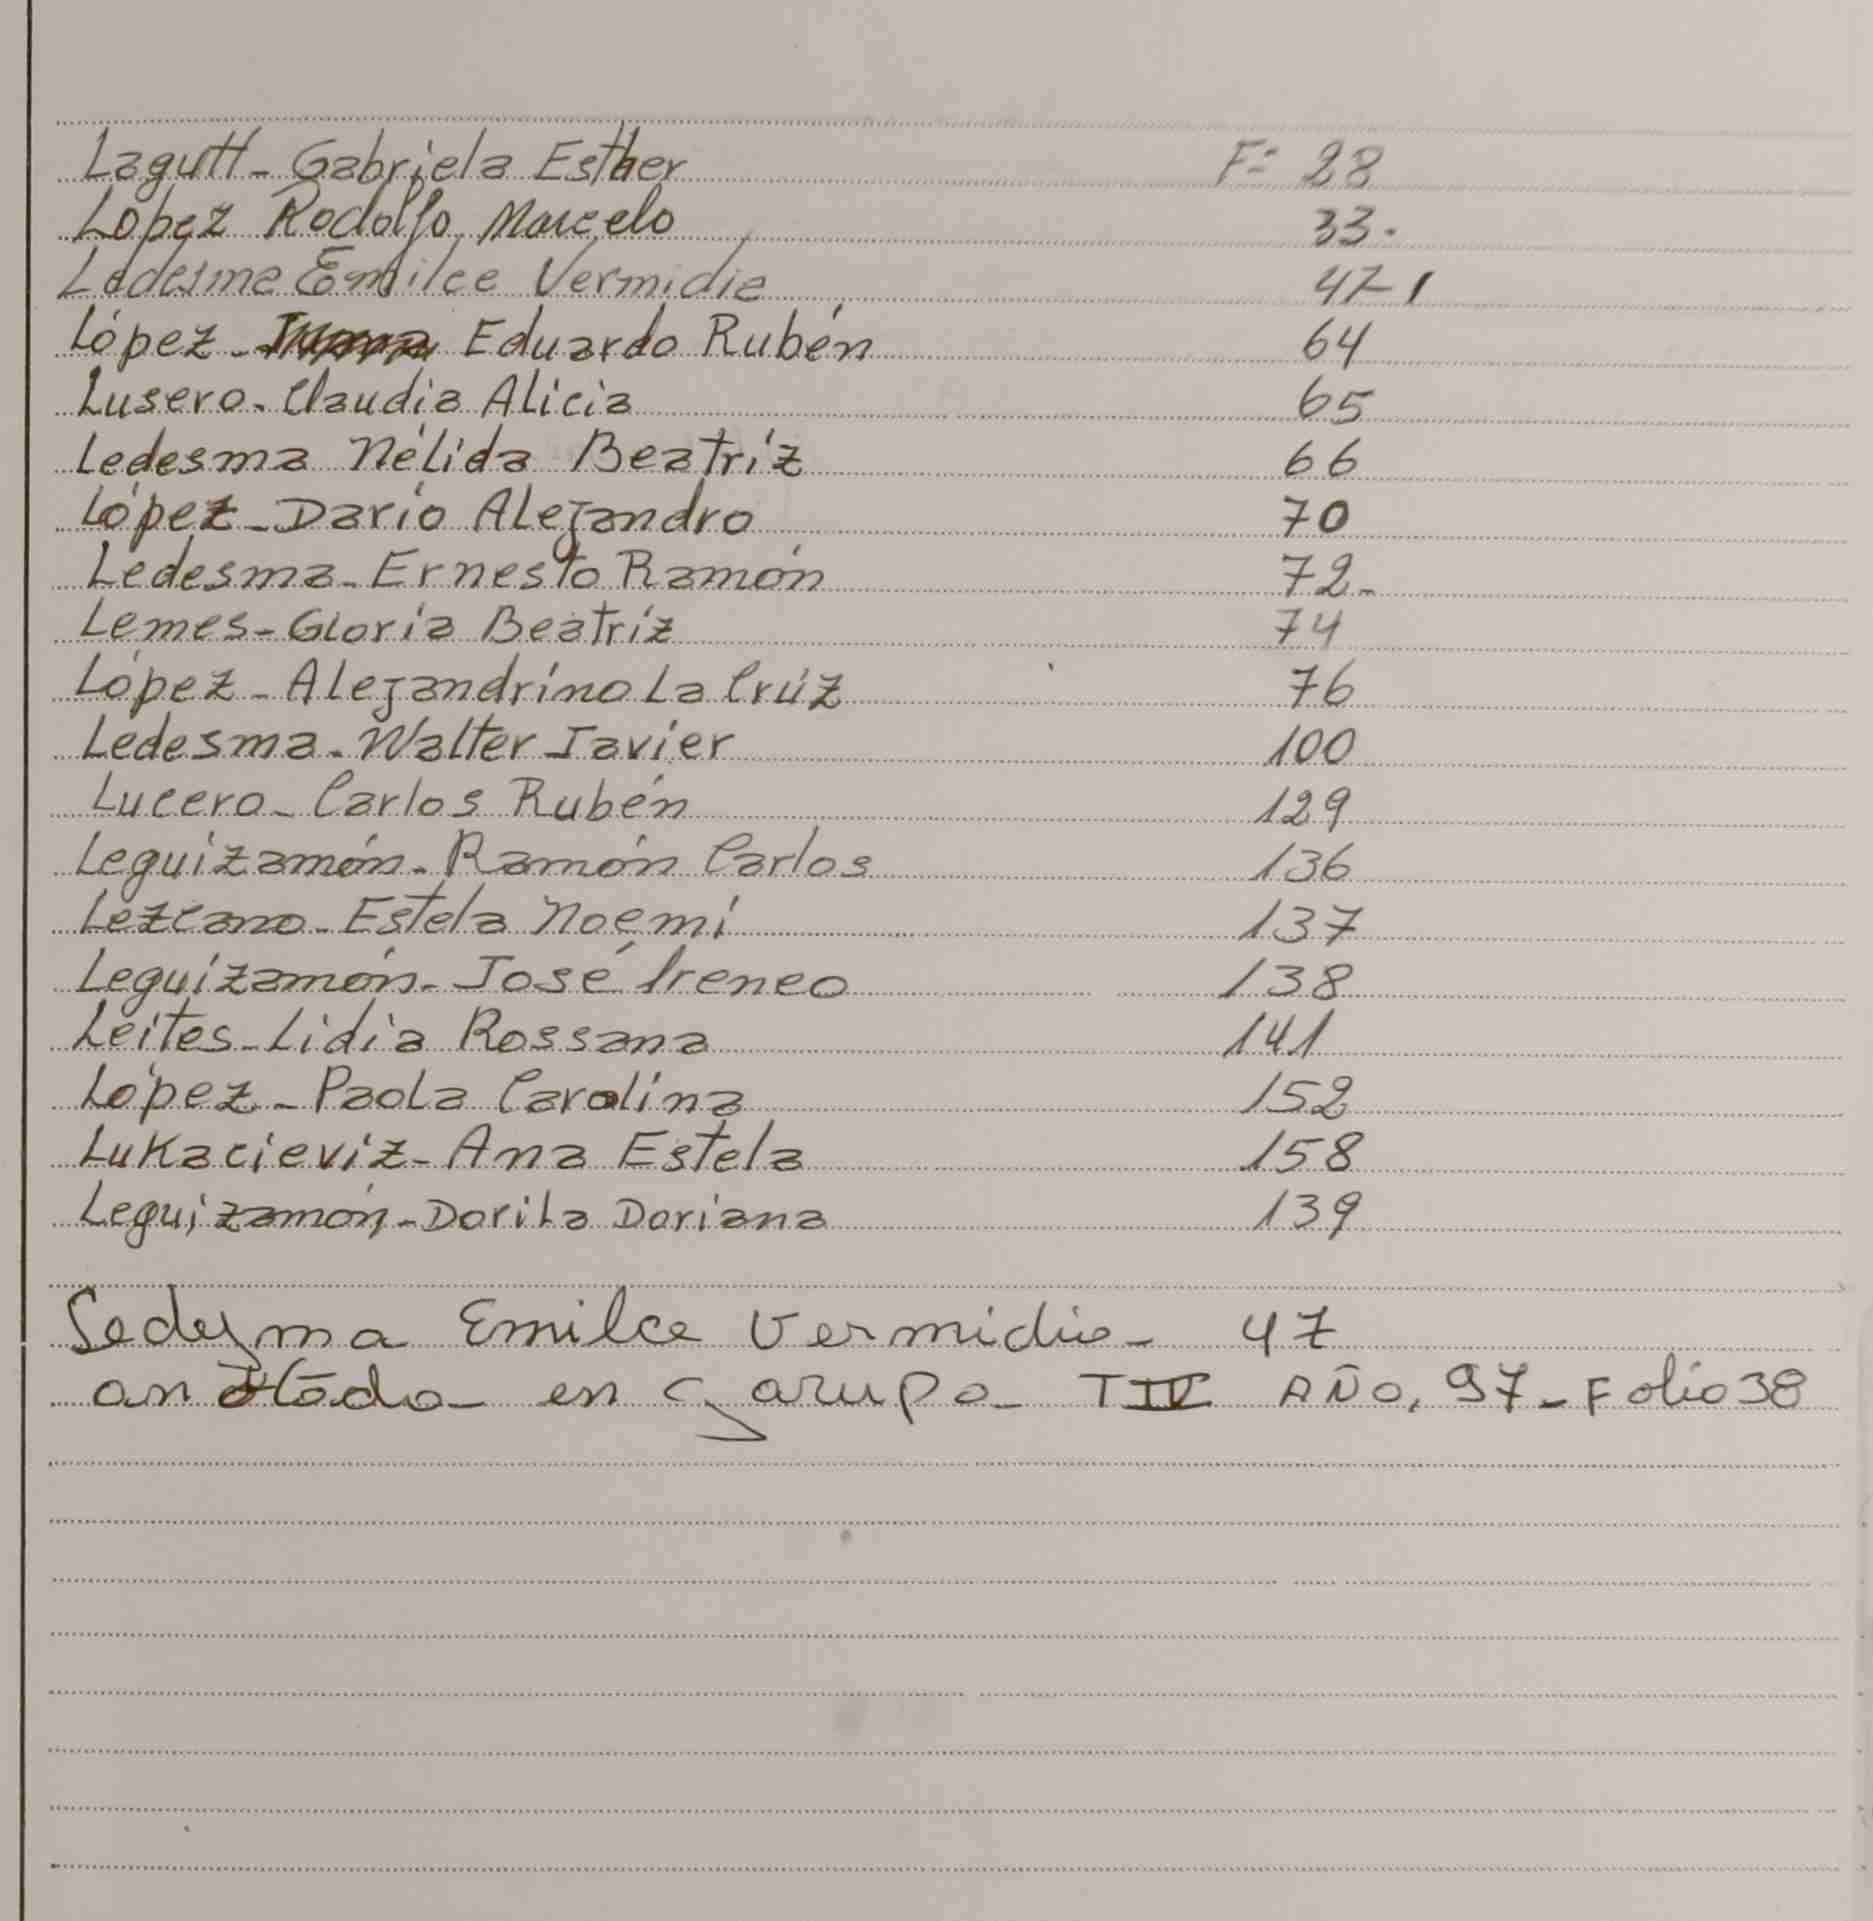 Lagutt - Gabriela Esther F= 28
López Rodolfo Marcelo 33.
Ledesma Emilce Vermidia 47-1
López - Eduardo Rubén 64
Lusero - Claudia Alicia 65
Ledesma Nélida Beatríz 66
López - Darío Alejandro 70
Ledesma - Ernesto Ramón 72-
Lemes - Gloria Beatríz 74
López - Alejandríno La Crúz 76
Ledesma - Walter Javier 100
Lucero - Carlos Rubén 129
Leguizamón - Ramón Carlos 136
Lezcano - Estela Noemí 137
Leguizamón - José Ireneo 138
Leites - Lidia Rossana 141
López - Paola Carolina 152
Lukacieviz - Ana Estela 158
Leguizamón - Dorila Doriana 139
Ledesma Emilce Vermidia - 47
anotado - en Garupa - AÑO, 97 - Folio 38